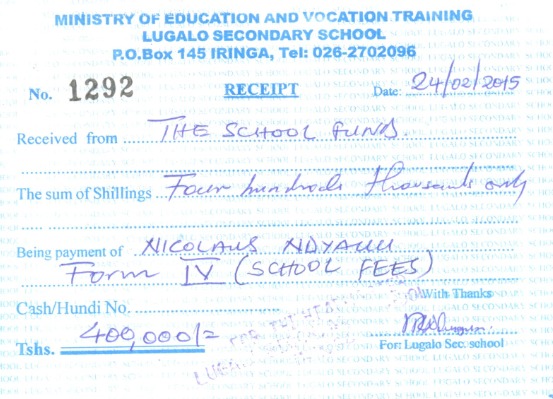 MINISTRY OF EDUCATION AND VOCATION TRAINING
LUGALO SECONDARY SCHOOL
P.O.Box 145 IRINGA, Tel: 026-2702096
No. 1292 RECEIPT Date: 24/02/2015
Received from THE SCHOOL FUND.
The sum of Shillings Four hundreds thousands only
Being payment of NICOLAUS
Form IV (SCHOOL FEES)
Cash/Hundi No.
With Thanks
Tshs. 400,000/=
For: Lugalo Sec. school